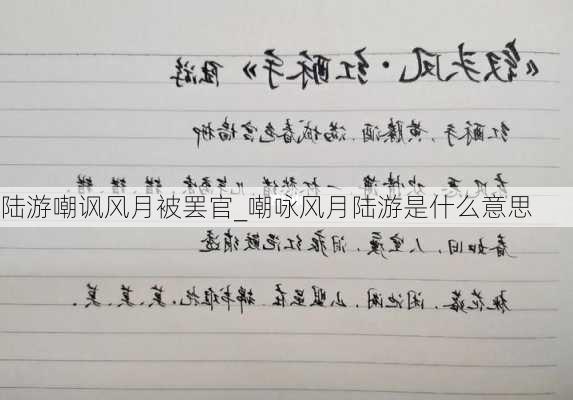 《钗头凤·红酥手》 陆游
红酥手，黄縢酒，满城春色宫墙柳
东风恶，欢情薄，一杯愁绪，几年离索，错、错、错。
陆游嘲讽风月被罢官_嘲咏风月陆游是什么意思
春如旧，人空瘦，泪痕红浥鲛绡透
桃花落，闲池阁，山盟虽在，锦书难托，莫、莫、莫。